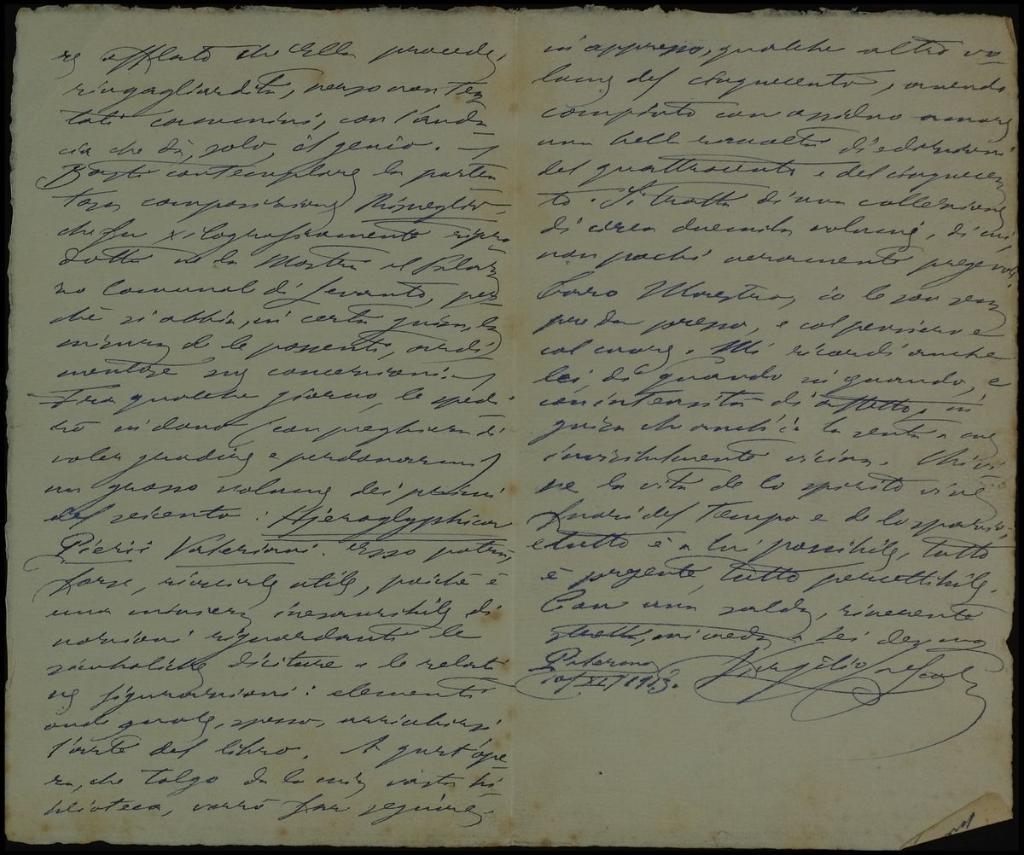 re afflato che Ella procede,
ringagliardita, verso non ten
tati cammini, con l'auda-
cia che dà, solo, il genio. —
Basti contemplare la porten
tosa composizione Risveglio,
che fu xilograficamente ripro
dotta ne la Mostra al Palaz
zo Comunal di Levanto, per
chè si abbia, in certa guisa, la
misura de le possenti, ardi
mentose sue concezioni. —
Fra qualche giorno, le spedi
rò in dono (con preghiera di
voler gradire e perdonarmi)
un grosso volume dei primi
del seicento: Hjeroglyphicor
Pierii Valeriani. Esso potrà,
forse, riuscirle utile, poichè è
una miniera inesauribile di
nozioni riguardante le
simboliche diciture e le relati
ve figurazioni: elementi
onde suole, spesso, arricchirsi
l'arte del libro. A quest'ope
ra, che tolgo da la mia vasta bi
blioteca, vorrò far seguire,
in appresso, qualche altro vo
lume del cinquecento, avendo
compiuto con assiduo amore
una bella raccolta di edizioni
del quattrocento e del cinquecen
to. Si tratta di una collezione
di circa duemila volumi, di cui
non pochi veramente pregevoli.
Caro Maestro, io le son sem
pre da presso, e col pensiero e
col cuore. Mi ricordi anche
lei, di quando in quando, e
con intensità di affetto, in
guisa che anch'io la senta a me
invisibilmente vicino. Chi vi
ve la vita de lo spirito vive
fuori del tempo e de lo spazio,
e tutto è a lui possibile, tutto
è presente, tutto percettibile.
Con una salda, riverente
stretta, mi creda a Lei devmo
Paterno
10/XI/1943.